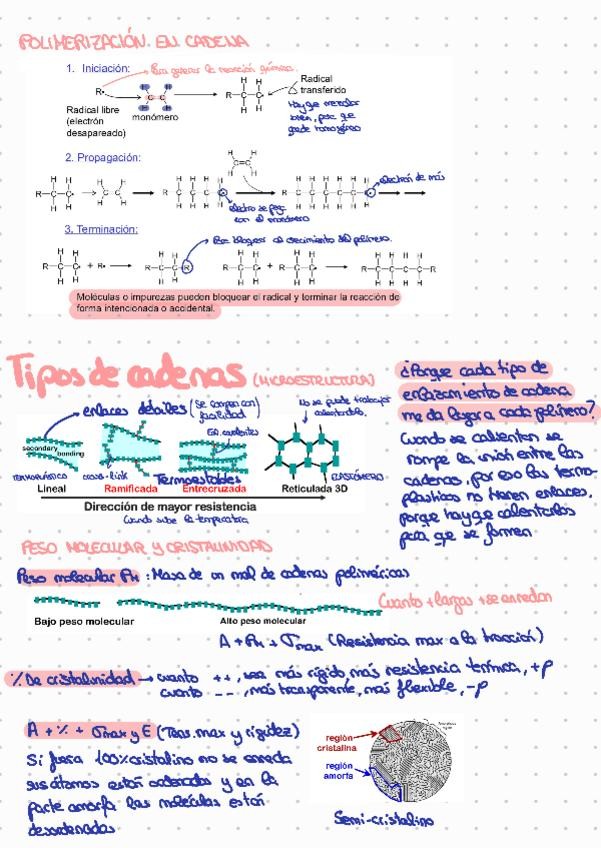 POLIMERIZACIÓN EN CADENA
1. Iniciación:
Para generar la reacción química.
R•
Radical libre
(electrón
desapareado)
monómero
Radical
transferido
Hay que mezclar
bien, para que
quede homogéneo
2. Propagación:
electrón de más
electro se pega
con el monómero
3. Terminación:
Para bloquear el crecimiento del polímero.
Moléculas o impurezas pueden bloquear el radical y terminar la reacción de
forma intencionada o accidental.
Tipos de cadenas (MICROESTRUCTURA)
enlaces débiles (se rompen con
facilidad)
No se puede trabajar
calentándolo.
secondary
bonding
cross-link
Termoestables
ELASTÓMERO
Lineal Ramificada Entrecruzada Reticulada 3D
Dirección de mayor resistencia
Cuando sube la temperatura
¿Porque cada tipo de
enlazamiento de cadena
me da lugar a cada polímero?
Cuando se calientan se
rompe la unión entre las
cadenas, por eso los termo-
plásticos no tienen enlaces,
porque hay que calentarlos
para que se formen
PESO MOLECULAR Y CRISTALINIDAD
Peso molecular PM : Masa de un mol de cadenas poliméricas
Cuanto + largas + se enredan
Bajo peso molecular Alto peso molecular
A + PM + σmax (Resistencia max a la tracción)
% De cristalinidad → cuanto ++, sea más rígido, más resistencia térmica, +ρ
cuanto --, más transparente, más flexible, -ρ
A + % + σmax y E (Tens. max y rigidez)
Si fuera 100% cristalino no se enreda
sus átomos están ordenados y en la
parte amorfa las moléculas están
desordenadas
región
cristalina
región
amorfa
Semi-cristalino